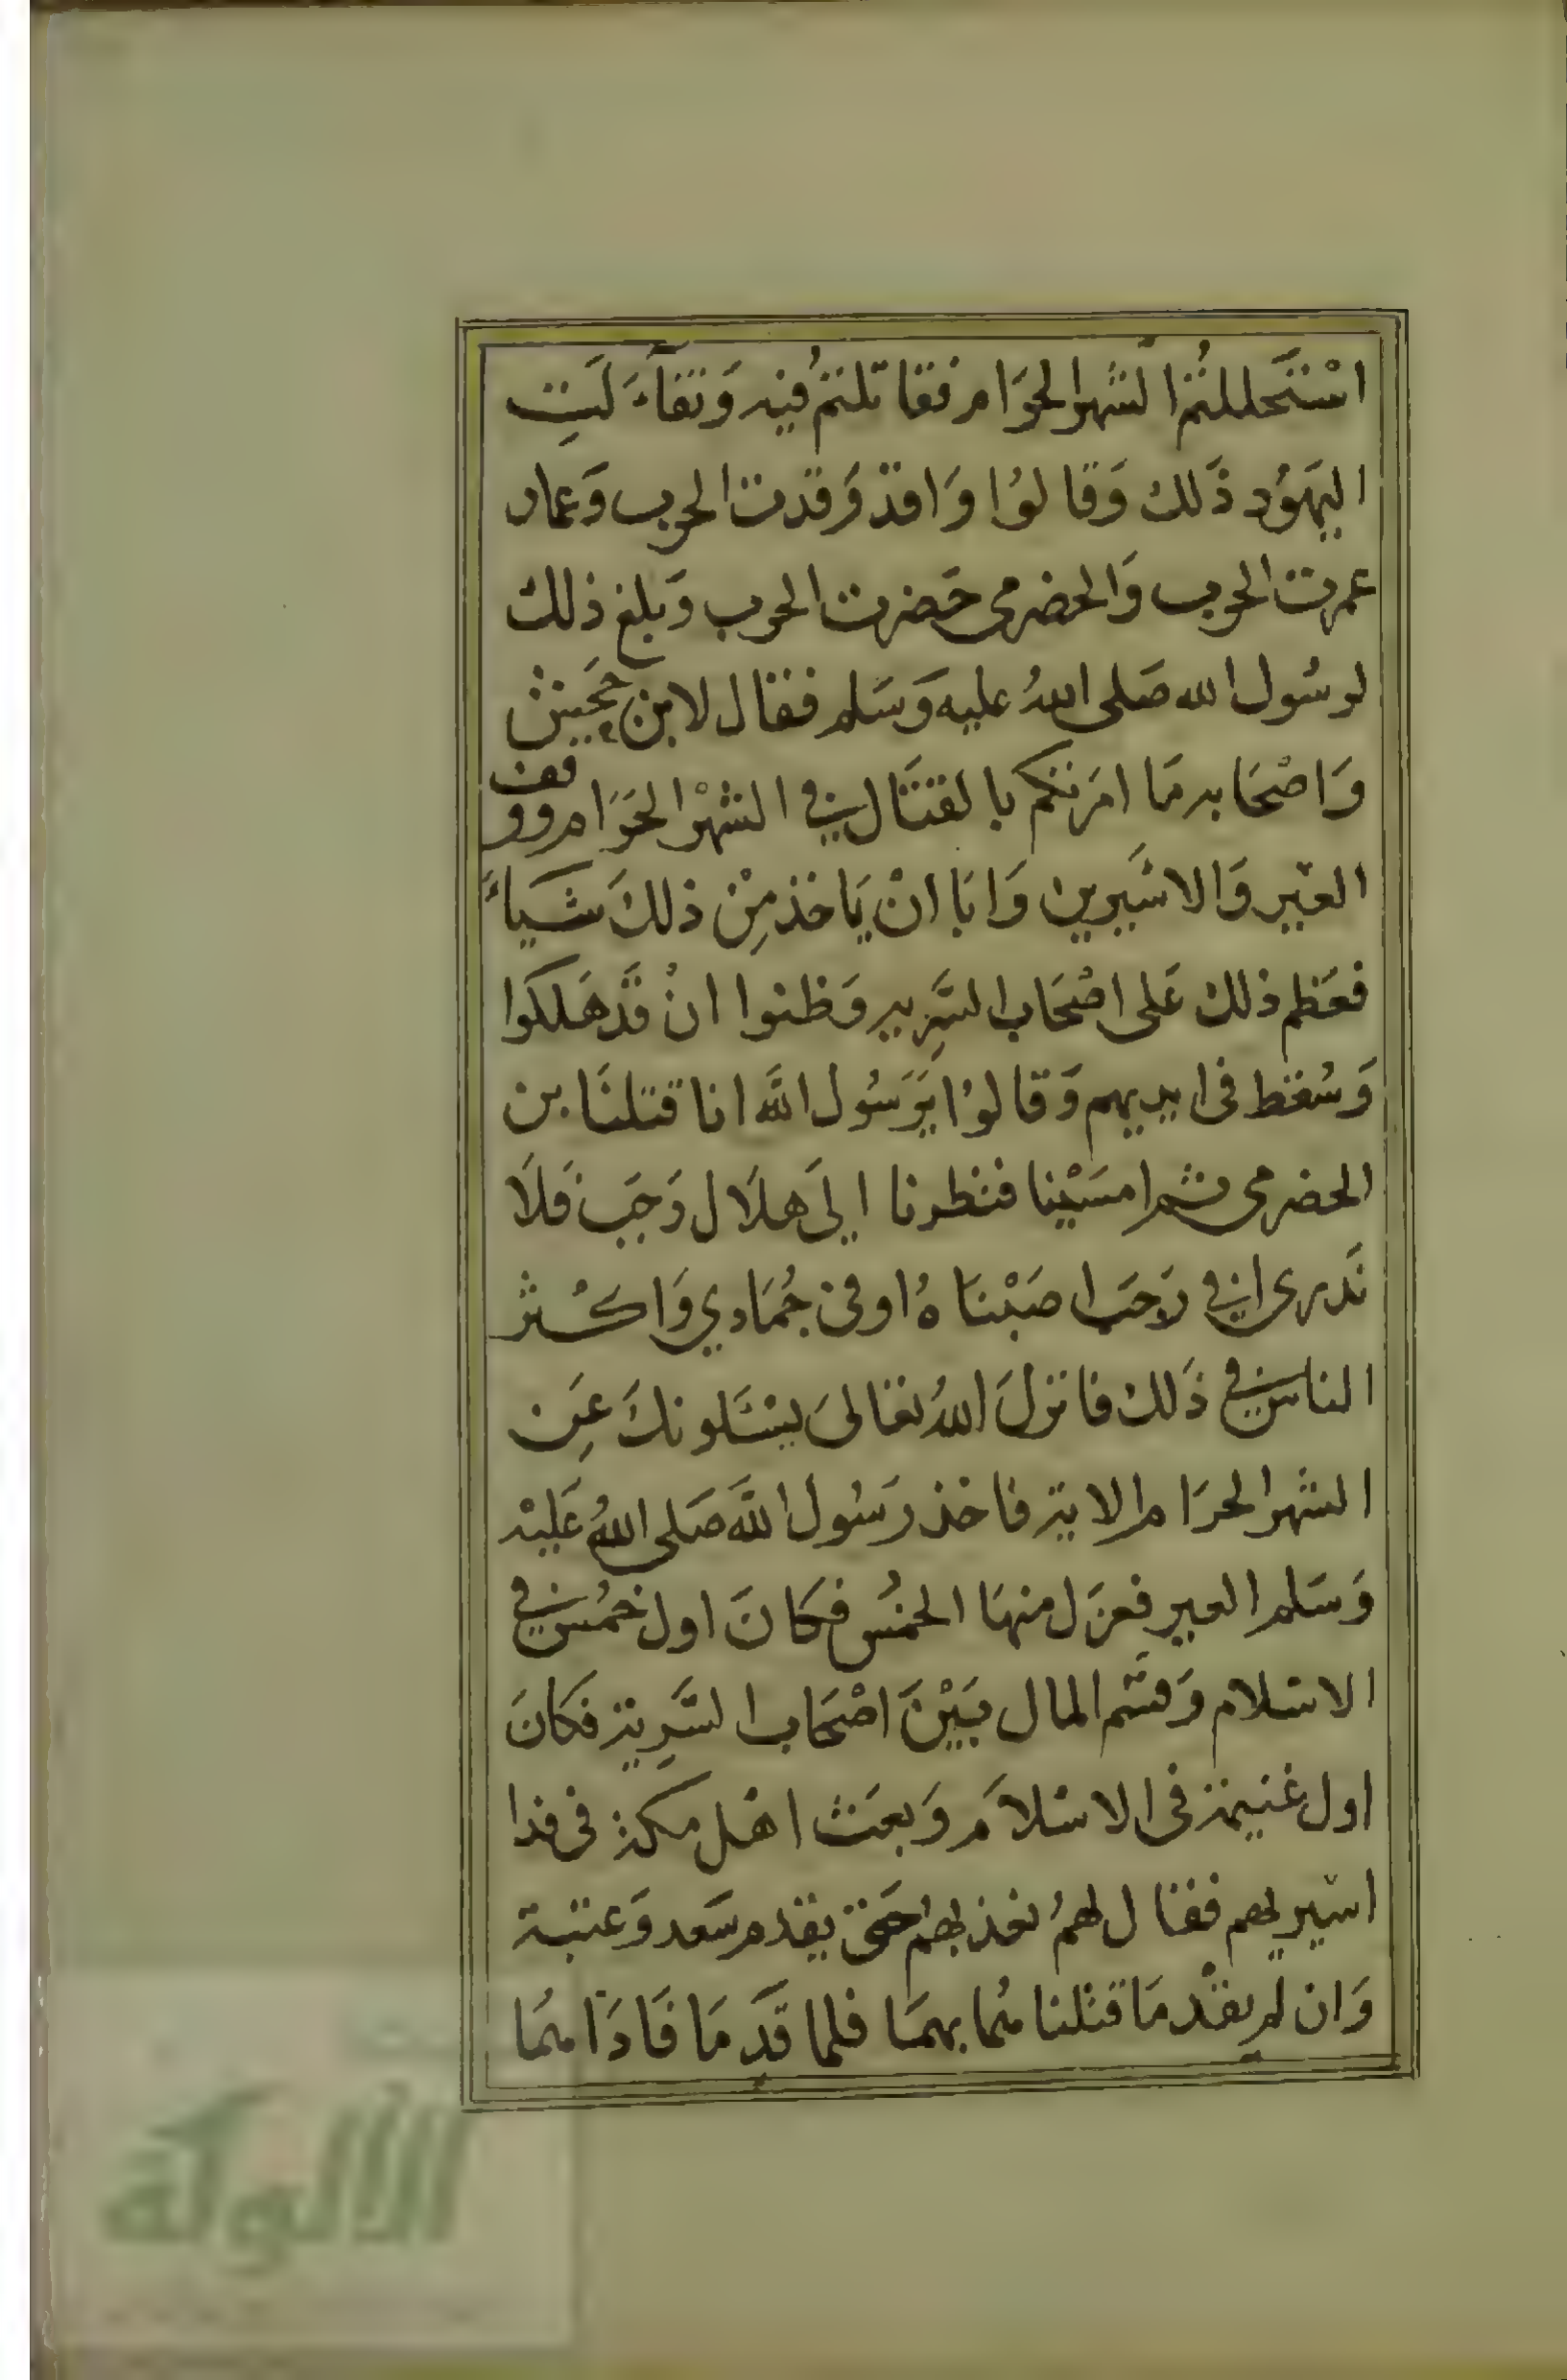 اسْتَحللتُم الشهر الحرَام فقاتلتمُ فيه وَتفآءَلَتِ
اليَهوُد ذَلك وَقالوُا وَاقد وَقدت الحرب وَعمار
عمرت الحرب وَالحضرمى حَضرت الحرب وَبلغ ذلك
لرسُول الله صَلى اللهُ عليه وَسَلم فقال لابن جَحيش
وَاصْحَابه مَا امَرتكم بالقتَال في الشهْر الحَرَام ووقف
العير وَالاسَيرين وَابَا انْ يَاخذ مِنْ ذلكَ شياءً
فعَظم ذلك عَلى اصْحَاب السَّرِيه وَظنوا انْ قَد هَلكوا
وَسُقط فى ايديهم وَقالوُا يَرَسُول الله انا قتلنَا بن
الحضرمى ثم امسَيْنا فنظرنا الىَ هلَال رَجَب فَلَا
نَدرى افي رَجَب اصَبْنَاهُ او فى جُمَادي وَاكثر
الناس في ذَلك فانزلَ اللهُ تعَالىَ يسْئَلونكَ عَنِ
الشهر الحرَام الاية فاخذ رَسُول الله صَلى اللهُ عَليْه
وَسَلم العير فعزَل منهَا الخمُس فكَانَ اول خمُس في
الاسلام وَقسَم المال بَيْنَ اصْحَاب السَّرِية فكَانَ
اول غنيمة فى الاسْلاَم وَبعَث اهْل مكة فى فدا
اسيريهم فقال لهمُ نعذبهمُ حَتى يقدم سَعد وَعتبة
وَان لم يقدْمَا قتلنا همُا بهمَا فلما قَدِمَا فَادَاهمَا
الألوكة